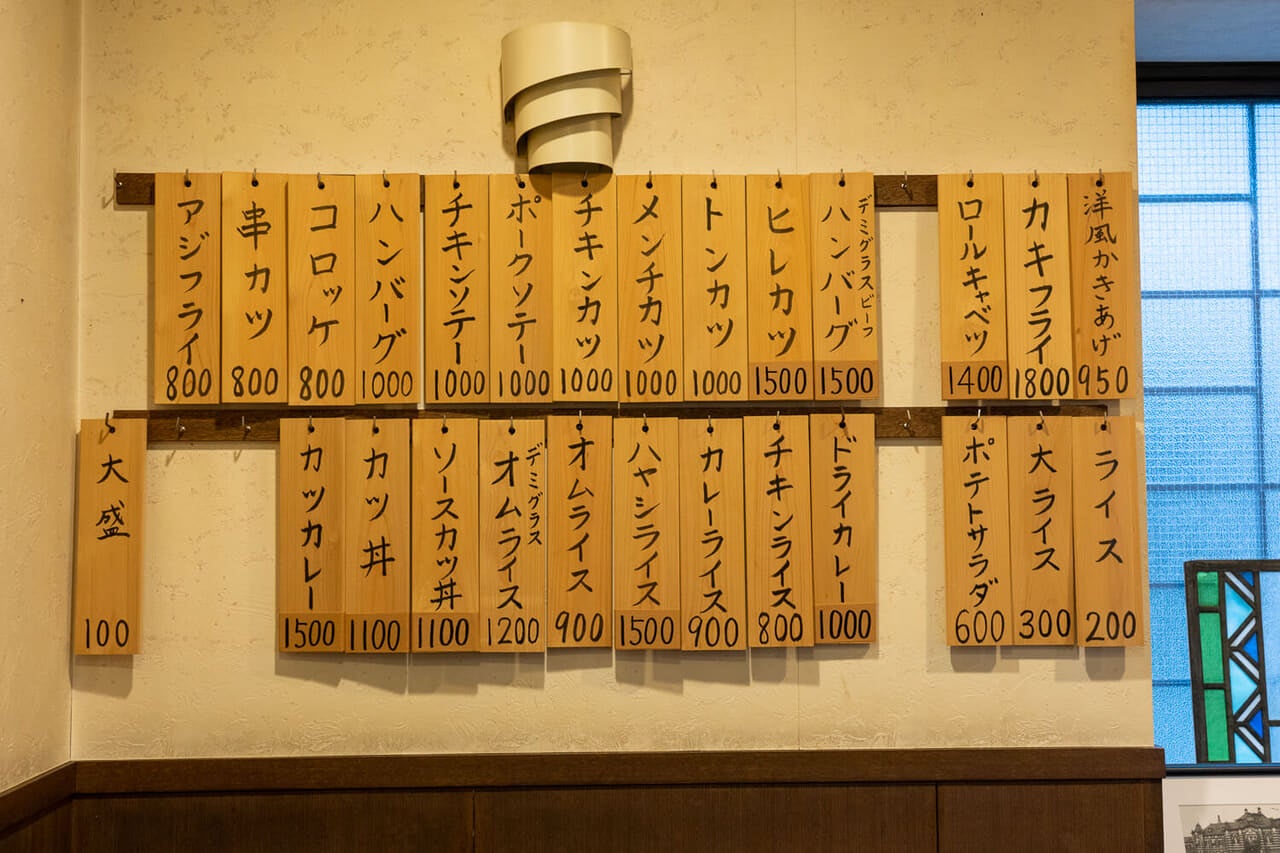 洋風かきあげ
950
カキフライ
1800
ロールキャベツ
1400
デミグラスビーフ
ハンバーグ
1500
ヒレカツ
1500
トンカツ
1000
メンチカツ
1000
チキンカツ
1000
ポークソテー
1000
チキンソテー
1000
ハンバーグ
1000
コロッケ
800
串カツ
800
アジフライ
800
ライス
200
大ライス
300
ポテトサラダ
600
ドライカレー
1000
チキンライス
800
カレーライス
900
ハヤシライス
1500
オムライス
900
デミグラス
オムライス
1200
ソースカツ丼
1100
カツ丼
1100
カツカレー
1500
大盛
100